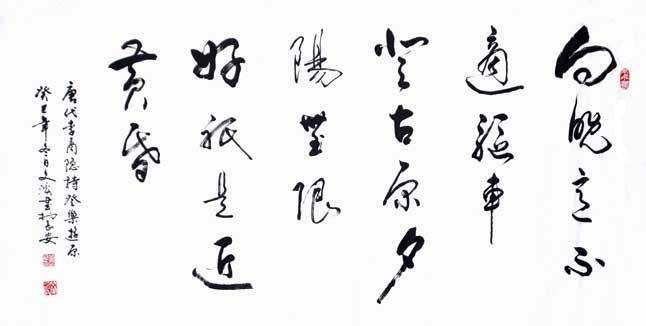 向晚意不
適驅車
登古原夕
陽無限
好祇是近
黄昏
唐代李商隐詩登樂遊原
癸巳年冬日文書於長安